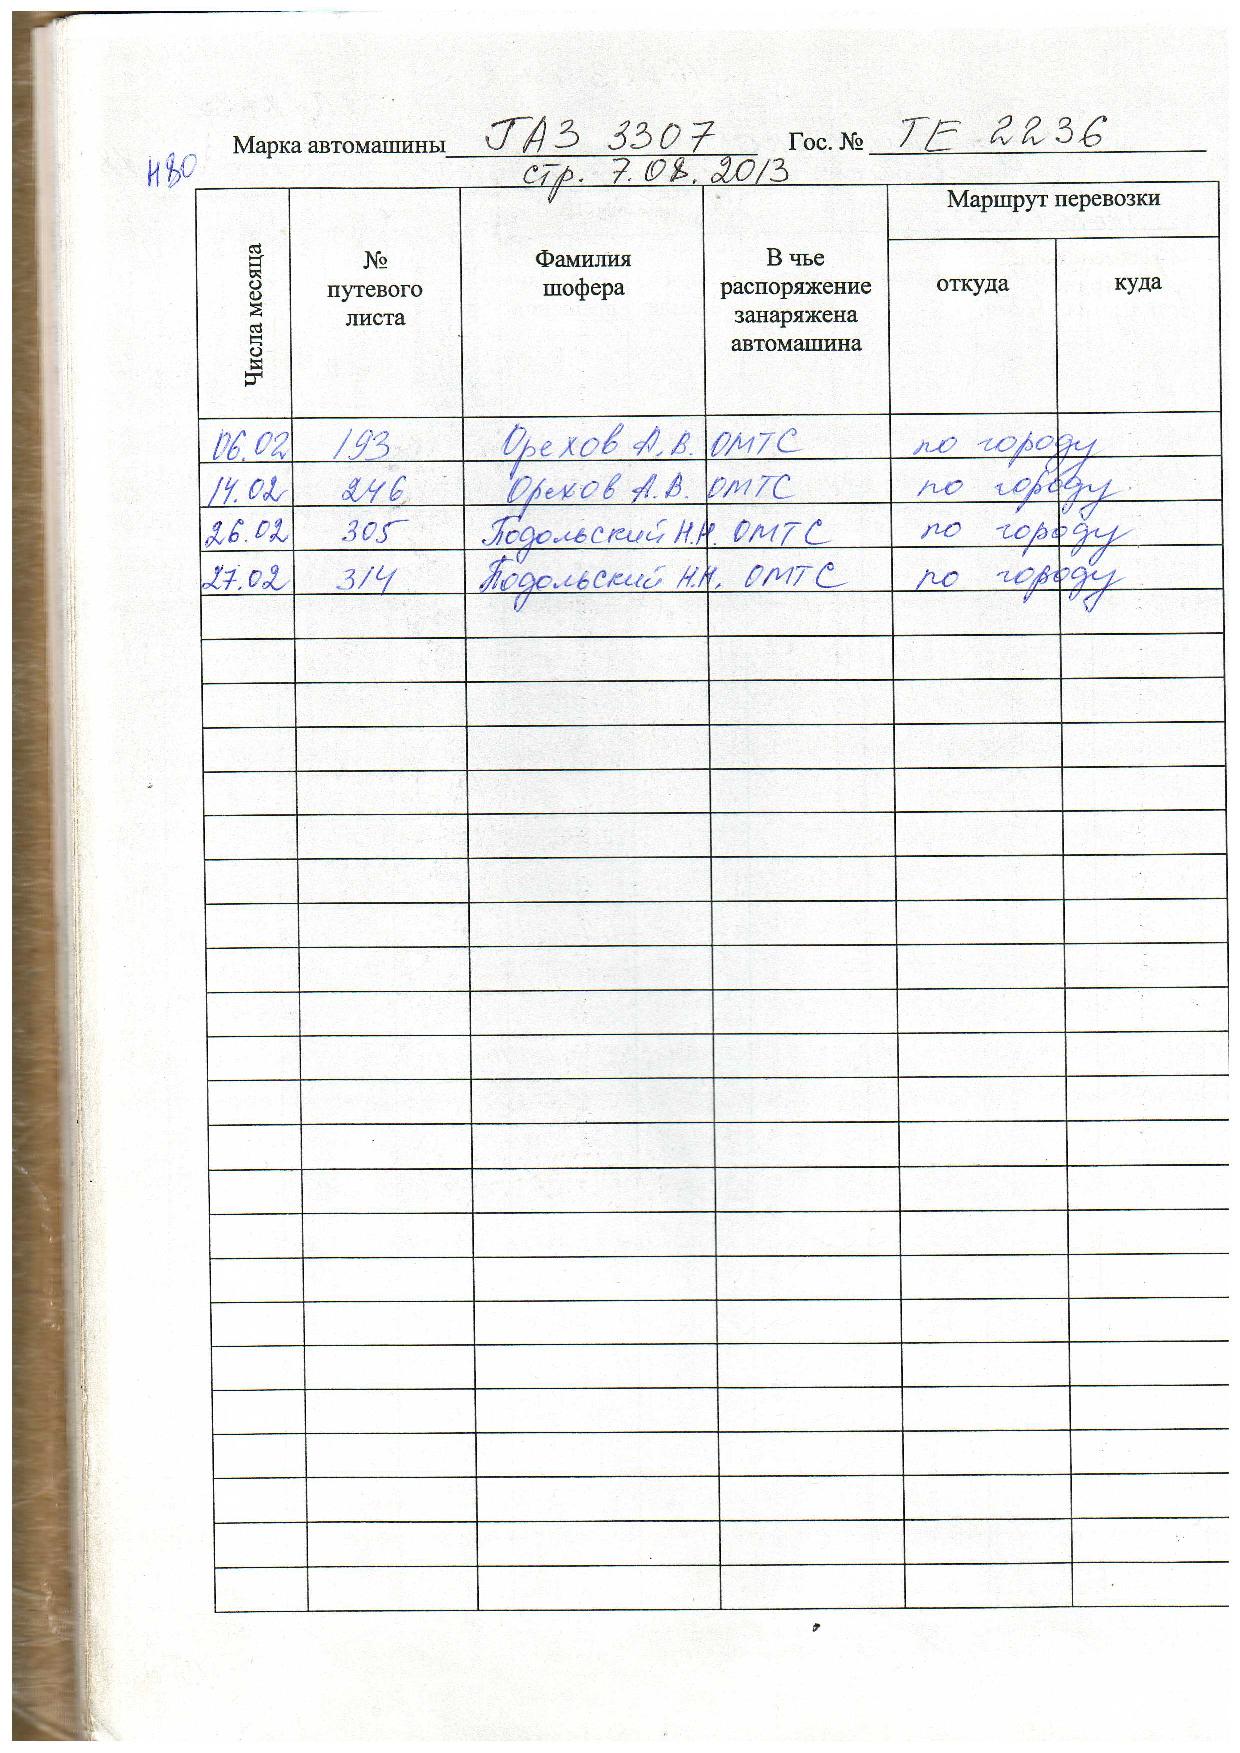 Марка автомашины ГАЗ 3307 Гос. № ТЕ 2236
НВО
стр. 7.08.2013
Числа месяца
№ путевого листа
Фамилия шофера
В чье распоряжение занаряжена автомашина
Маршрут перевозки
откуда куда
06.02 193 Орехов А.В. ОМТС по городу
14.02 246 Орехов А.В. ОМТС по городу
26.02 305 Подольский Н.Н. ОМТС по городу
27.02 314 Подольский Н.Н. ОМТС по городу